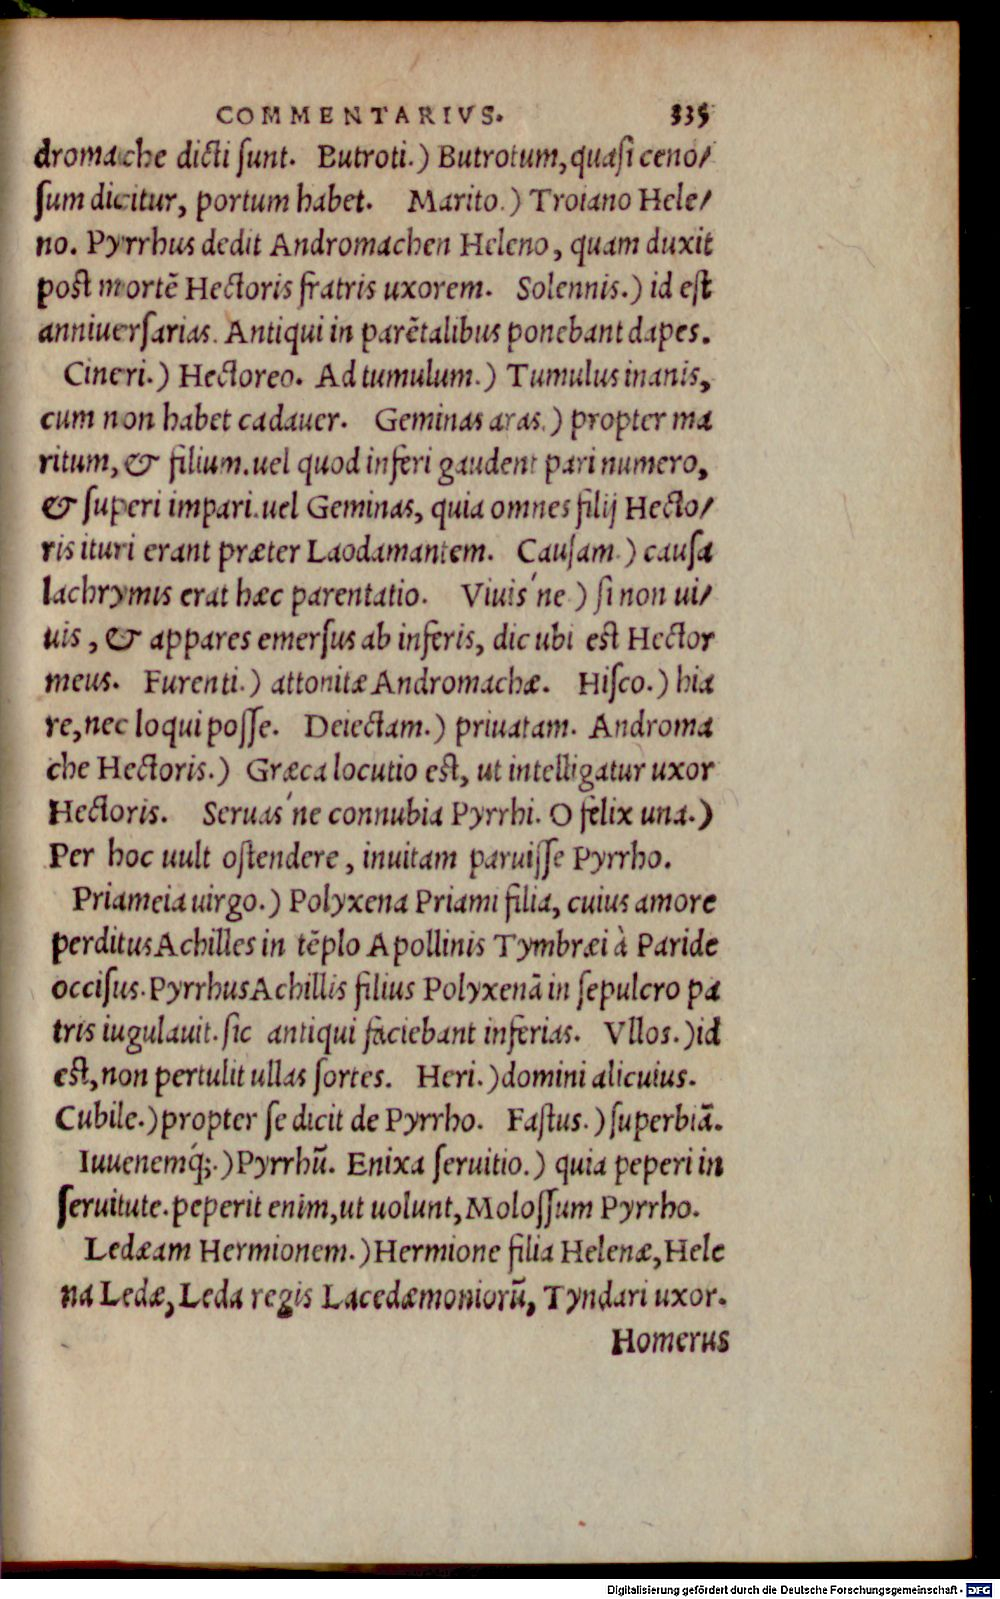 COMMENTARIVS. 335
dromache dicti ſunt. Butroti.) Butrotum, quaſi ceno/
ſum dicitur, portum habet. Marito.) Troiano Hele/
no. Pyrrhus dedit Andromachen Heleno, quam duxit
poſt mortẽ Hectoris fratris uxorem. Solennis.) id eſt
anniuerſarias. Antiqui in parẽtalibus ponebant dapes.
Cineri.) Hectoreo. Ad tumulum.) Tumulus inanis,
cum non habet cadauer. Geminas aras.) propter ma
ritum, & filium. uel quod inferi gaudent pari numero,
& ſuperi impari. uel Geminas, quia omnes filij Hecto/
ris ituri erant præter Laodamantem. Cauſam.) cauſa
lachrymis erat hæc parentatio. Viuis'ne) ſi non ui/
uis, & appares emerſus ab inferis, dic ubi eſt Hector
meus. Furenti.) attonitæ Andromachæ. Hiſco.) hia
re, nec loqui poſſe. Deiectam.) priuatam. Androma
che Hectoris.) Græca locutio eſt, ut intelligatur uxor
Hectoris. Seruas'ne connubia Pyrrhi. O felix una.)
Per hoc uult oſtendere, inuitam paruiſſe Pyrrho.
Priameia uirgo.) Polyxena Priami filia, cuius amore
perditus Achilles in tẽplo Apollinis Tymbræi à Paride
occiſus. Pyrrhus Achillis filius Polyxenã in ſepulcro pa
tris iugulauit. ſic antiqui faciebant inferias. Vllos.) id
eſt, non pertulit ullas ſortes. Heri.) domini alicuius.
Cubile.) propter ſe dicit de Pyrrho. Faſtus.) ſuperbiã.
Iuuenemq́;.) Pyrrhũ. Enixa ſeruitio.) quia peperi in
ſeruitute. peperit enim, ut uolunt, Moloſſum Pyrrho.
Ledæam Hermionem.) Hermione filia Helenæ, Hele
na Ledæ, Leda regis Lacedæmoniorũ, Tyndari uxor.
Homerus
Digitalisierung gefördert durch die Deutsche Forschungsgemeinschaft - DFG